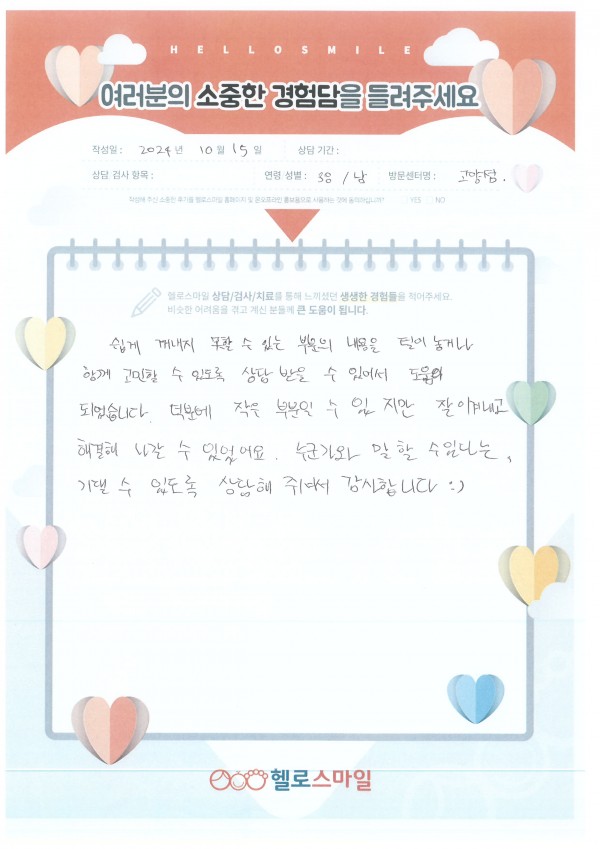 HELLOSMILE
여러분의 소중한 경험담을 들려주세요
작성일 : 2024 년 10 월 15 일 상담 기간 :
상담 검사 항목 : 연령 성별 : 30 / 남 방문센터명 : 고양점.
작성해 주신 소중한 후기를 헬로스마일 홈페이지 및 온오프라인 홍보용으로 사용하는 것에 동의하십니까? YES NO
헬로스마일 상담/검사/치료를 통해 느끼셨던 생생한 경험들을 적어주세요.
비슷한 어려움을 겪고 계신 분들께 큰 도움이 됩니다.
쉽게 꺼내지 못할 수 있는 부분의 내용을 털어 놓거나
함께 고민할 수 있도록 상담 받을 수 있어서 도움이
되었습니다. 덕분에 작은 부분일 수 있지만 잘 이겨내고
해결해 나갈 수 있었어요. 누군가와 말 할 수 있다는,
기댈 수 있도록 상담해 주셔서 감사합니다 :)
헬로스마일